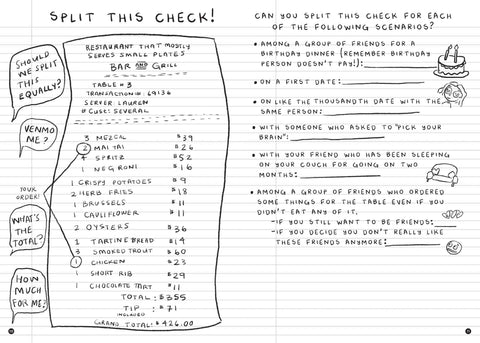 SPLIT THIS CHECK!
SHOULD
WE SPLIT
THIS
EQUALLY?
VENMO
ME?
YOUR
ORDER!
WHAT'S
THE
TOTAL?
HOW
MUCH
FOR ME?
RESTAURANT THAT MOSTLY
SERVES SMALL PLATES
BAR AND GRILL
TABLE # 3
TRANSACTION #: 69136
SERVER LAUREN
# CUST: SEVERAL
3 MEZCAL $39
2 MAI TAI $26
4 SPRITZ $52
1 NEGRONI $16
1 CRISPY POTATOES $9
2 HERB FRIES $18
1 BRUSSELS $11
1 CAULIFLOWER $11
2 OYSTERS $36
1 TARTINE BREAD $14
3 SMOKED TROUT $60
1 CHICKEN $23
1 SHORT RIB $29
1 CHOCOLATE TART $11
TOTAL: $355
TIP: $71
INCLUDED
GRAND TOTAL: $426.00
CAN YOU SPLIT THIS CHECK FOR EACH
OF THE FOLLOWING SCENARIOS?
• AMONG A GROUP OF FRIENDS FOR A
BIRTHDAY DINNER (REMEMBER BIRTHDAY
PERSON DOESN'T PAY!):
• ON A FIRST DATE:
• ON LIKE THE THOUSANDTH DATE WITH THE
SAME PERSON:
• WITH SOMEONE WHO ASKED TO "PICK YOUR
BRAIN":
• WITH YOUR FRIEND WHO HAS BEEN SLEEPING
ON YOUR COUCH FOR GOING ON TWO
MONTHS:
• AMONG A GROUP OF FRIENDS WHO ORDERED
SOME THINGS FOR THE TABLE EVEN IF YOU
DIDN'T EAT ANY OF IT.
-IF YOU STILL WANT TO BE FRIENDS:
-IF YOU DECIDE YOU DON'T REALLY LIKE
THESE FRIENDS ANYMORE: